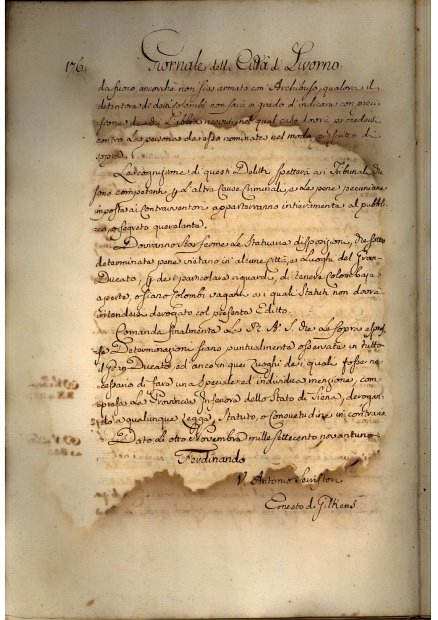 176. Giornale della Città di Livorno
da fuoco, ancorché non sia armata con Archibuso, qualora il
detentore de detti Colombi non sarà in grado d'indicare con preci-
sione da chi nel qual caso dovrà procedersi
contro la persona da esso nominata nel modo prescritto di
sopra.
La cognizione di questi Delitti spetterà ai Tribunali che
sono competenti p l'altre Cause Criminali, e le pene pecuniarie
imposte ai Contravventori apparterranno interamente al pubbli-
co, o segreto querelante.
Dovranno star ferme le Statuarie disposizioni, che sotto
determinate pene vietano in alcune Città, e Luoghi del Gran-
Ducato, p dei particolari riguardi, di tenere Colombaje
aperte, o siano Colombi vaganti ai quali Statuti non dovrà
intendersi derogato col presente Editto.
Comanda finalmente la R. A. S. che le sopra espres-
se Determinazioni siano puntualmente osservate in tutto
il Gran Ducato, ed anco in quei Luoghi dei quali fosse ne-
cessario di fare una speciale ed individua menzione, com-
presa la Provincia Inferiore dello Stato di Siena, derogan-
do a qualunque Legge, Statuto, o Consuetudine in contrario.
Dato li otto Novembre mille settecento novantuno
Ferdinando
V. Antonio Serristori
Ernesto di Gilkens